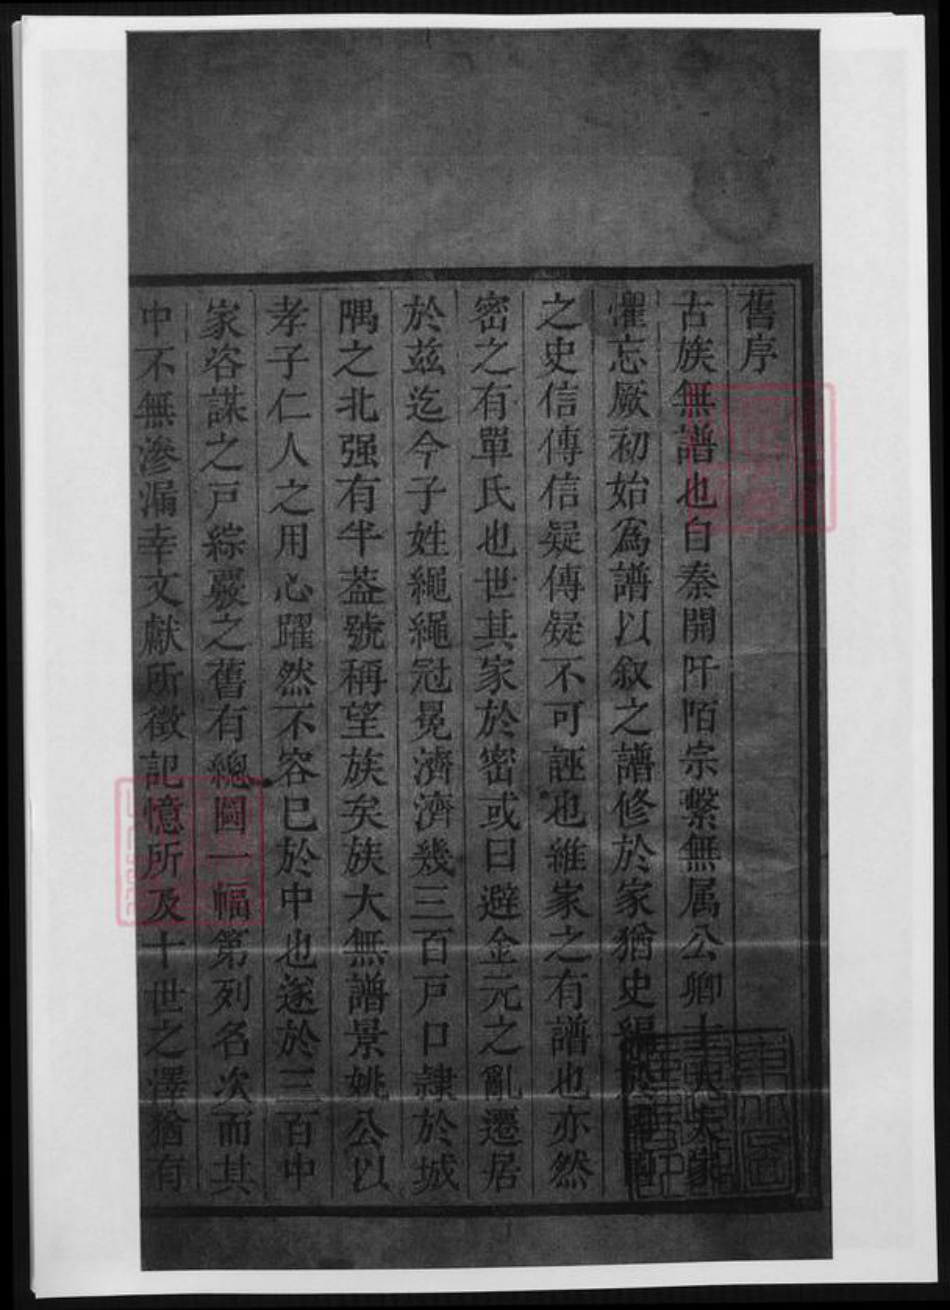 舊序
古族無譜也自秦開阡陌宗繫無属公卿士大夫家
懼忘厥初始為譜以叙之譜修於家猶史編於國
之史信傳信疑傳疑不可誣也維家之有譜也亦然
密之有單氏也世其家於密或曰避金元之亂遷居
於兹迄今子姓繩繩冠冕濟濟幾三百戸口隷於城
隅之北强有半葢號稱望族矣族大無譜景姚公以
孝子仁人之用心躍然不容已於中也遂於三百中
家咨謀之戸綜覈之舊有總圖一幅第列名次而其
中不無滲漏幸文獻所徵記憶所及十世之澤猶有